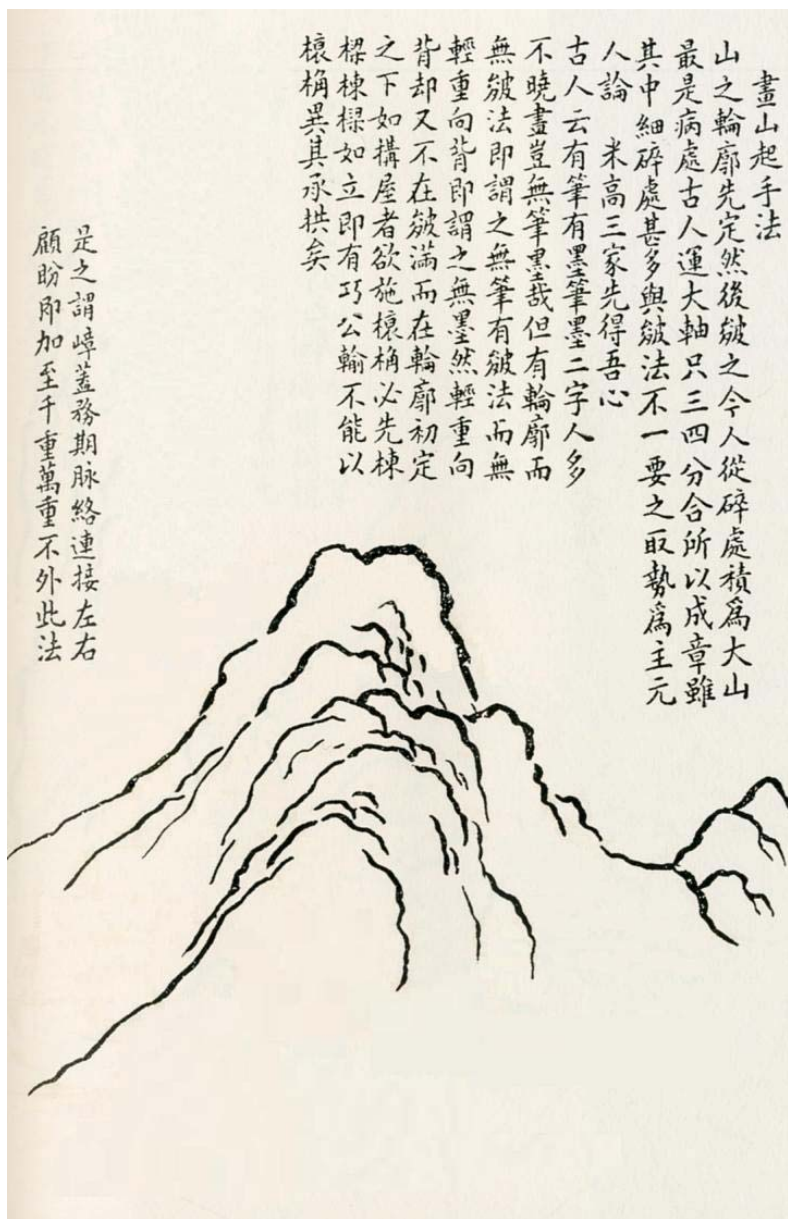 畫山起手法
山之輪廓先定然後皴之今人從碎處積爲大山
最是病處古人運大軸只三四分合所以成章雖
其中細碎處甚多與皴法不一要之取勢爲主元
人論　米高三家先得吾心
古人云有筆有墨筆墨二字人多
不曉畫豈無筆墨哉但有輪廓而
無皴法即謂之無筆有皴法而無
輕重向背即謂之無墨然輕重向
背却又不在皴滿而在輪廓初定
之下如搆屋者欲施榱桷必先棟
樑棟樑如立即有巧公輸不能以
榱桷異其承拱矣
是之謂嶂蓋務期脉絡連接左右
顧盼即加至千重萬重不外此法